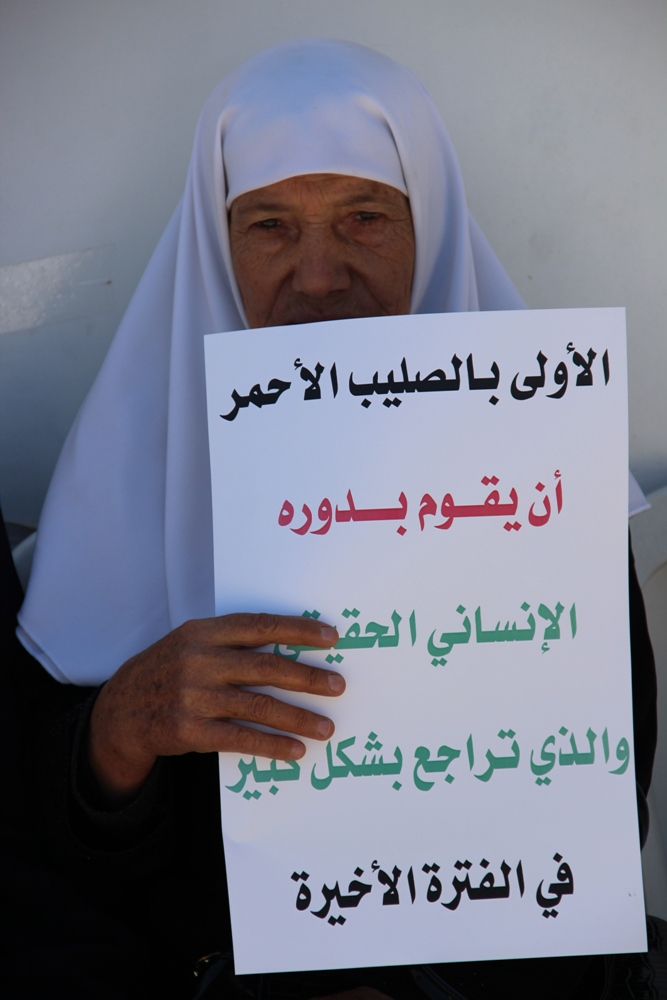 الأولى بالصليب الأحمر
أن يقوم بدوره
الإنساني الحقيقي
والذي تراجع بشكل كبير
في الفترة الأخيرة